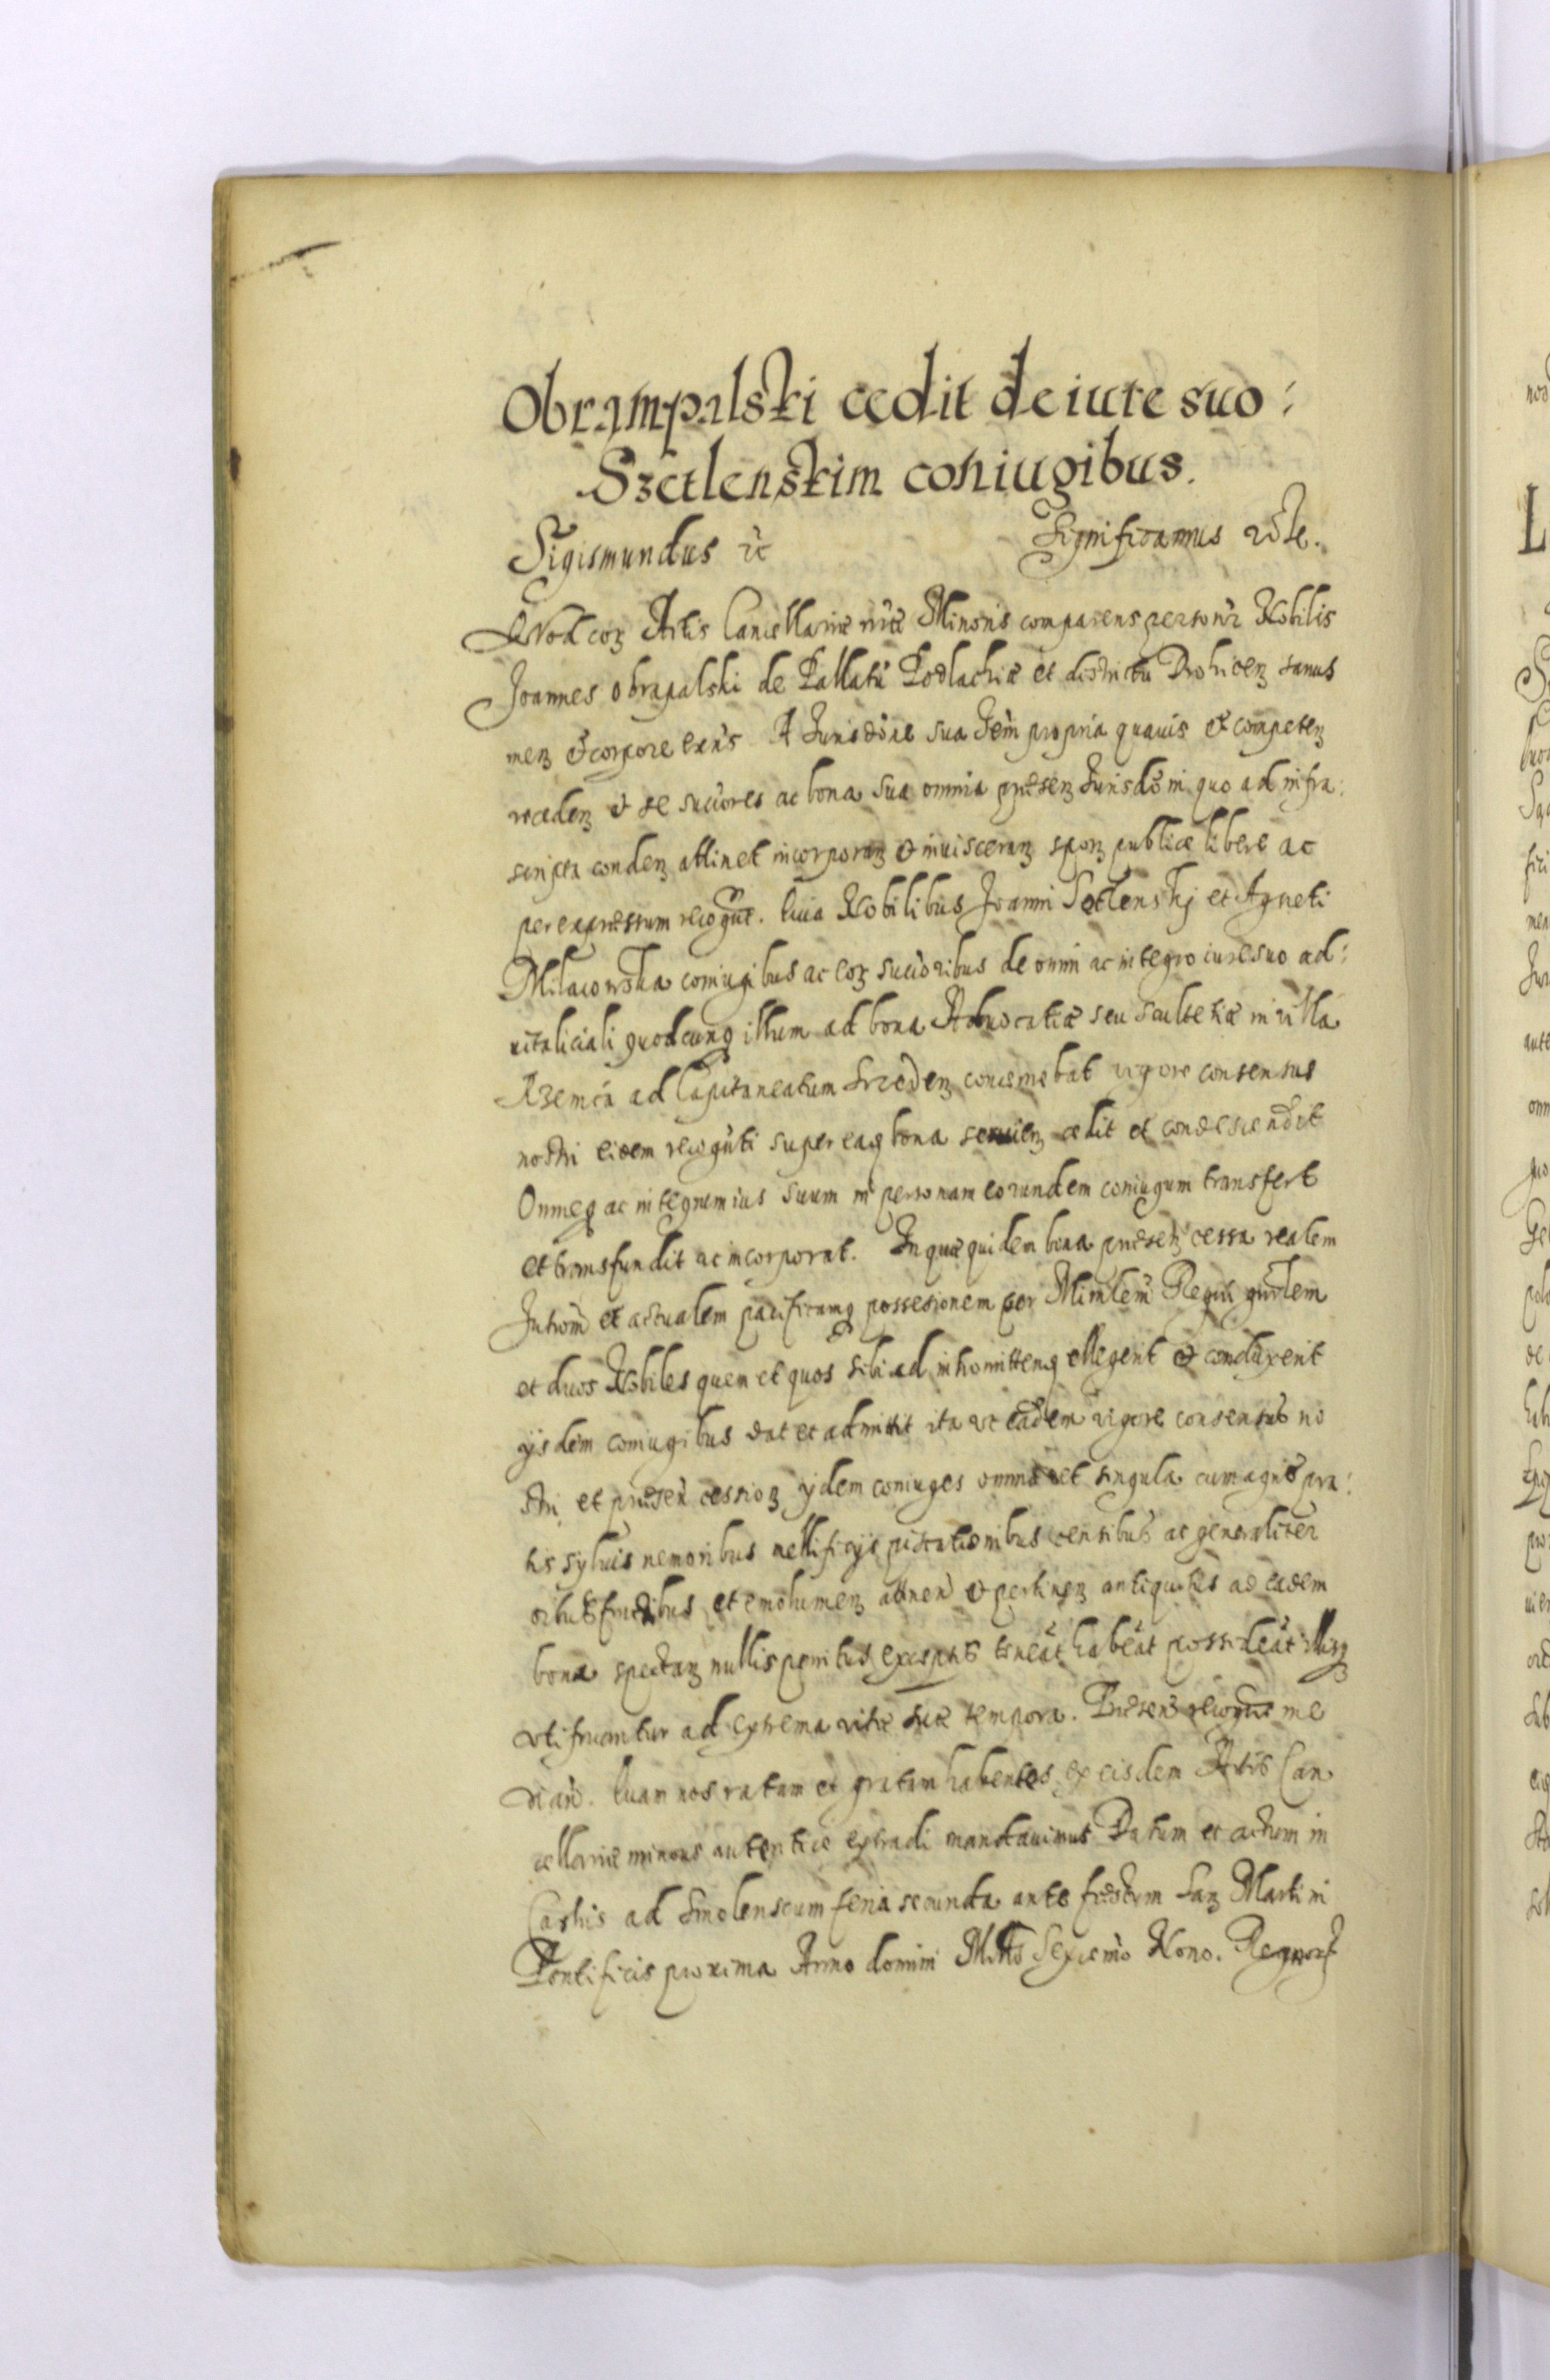 Obrampalski cedit de iure suo:
Szetlenskim coniugibus.
Sigismundus etc Significamus
Quod cor Actis Cancellariæ Minoris comparens personr Nobilis
Joannes Obrapalski de Pallatu Podlachiæ et districtu Drohicen sanus
men et corpore exns A Jurisdõne sua propria quauis et competen
receden et se succõres ac bona sua omnia præsen Jurisdõni quo ad infra:
scripta conden attinet incorporan et inuisceran spon publice libere ac
per expressum recognt. Quia Nobilibus Joanni Setlenskj et Agneti
Milacowska coniugibus ac eor succõribus de omni ac integro iure suo ad:
uitaliciali quodcunq illum ad bona Aduocatiæ seu Scultetiæ in villa
ad Capitaneatum concernebat vigore consensus
nostri eidem recognti super eaq bona seruien cedit et condescendit
Omneq ac integrum ius suum in personam eorundem coniugum transfert
et transfundit ac incorporat. In quæ quidem bona præsen cessa realem
Introm et actualem pacificamq possesionem per Minlem Regni gnrlem
et duos Nobiles quem et quos sibi ad intromittenq ellegerit et conduxerit
ijsdem coniugibus dat et admittit ita vt eadem vigore consensus no
stri et præsen cession ijdem coniuges omnia et singula cum agris pra:
tis syluis nemoribus mellificijs piscationibus censibus ac generaliter
fructibus et emolumen attinen et pertinen antiquitus ad eadem
bona spectan nullis penitus exceptis teneãt habeãt possideãt illisq
vti fruantur ad extrema vitæ suæ tempora. Præsen recogne me
dian. Quam nos ratam et gratam habentes ex eisdem Actis Can
cellariæ minoris autentice extradi mandauimus Datum et actum in
Castris ad Smolenscum feria secunda ante festum San Martini
Pontificis proxima Anno domini Millo Sexcemo Nono. Regnor